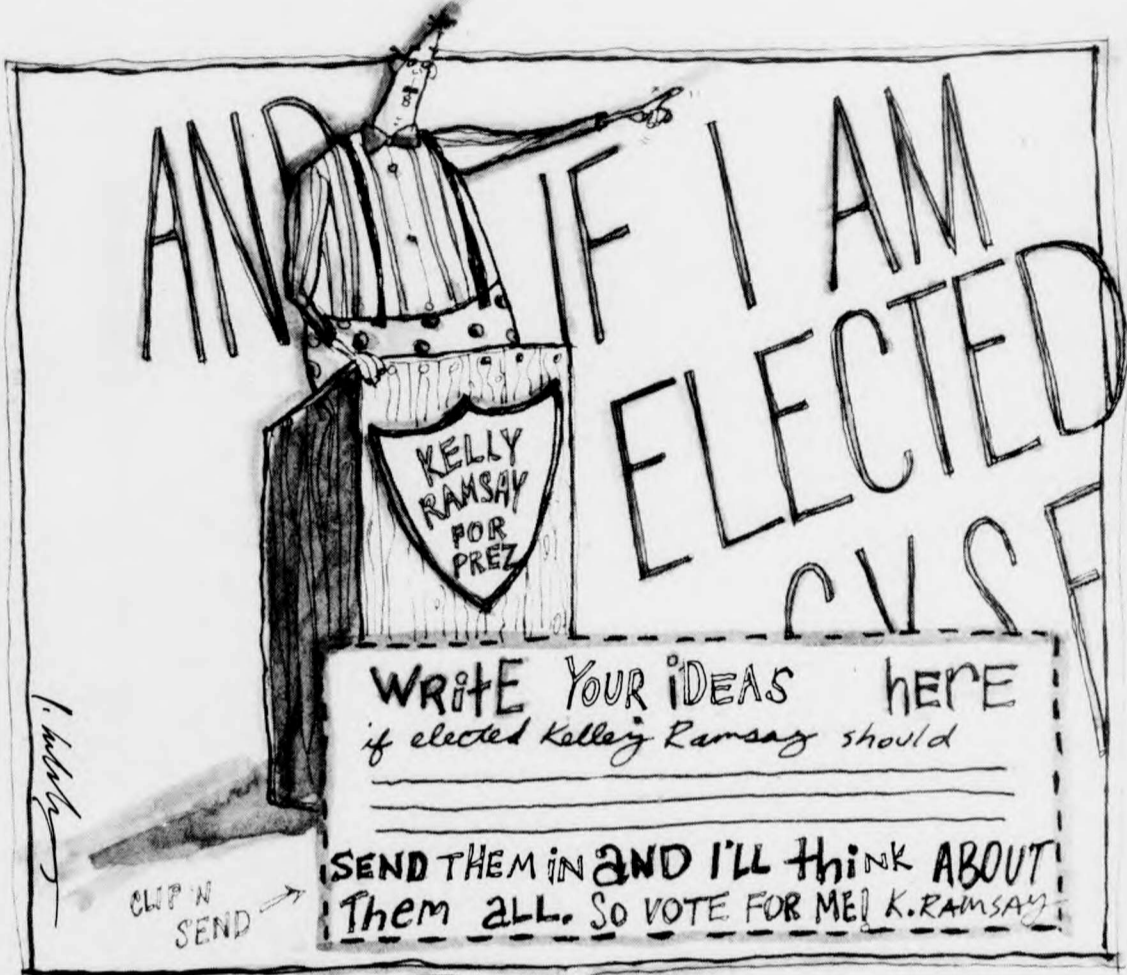 AND IF I AM
ELECTED
KELLY
RAMSAY
FOR
PREZ
WRitE YOUR iDEAS hErE
if elected Kelley Ramsay should
SEND THEM iN aND I'LL thiNK ABOUT
Them aLL. SO VOTE FOR ME! K. RAMSAY
CLIP 'N
SEND